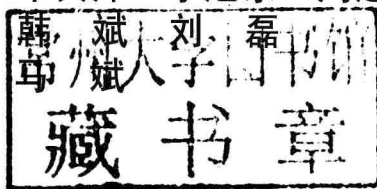 韩 斌 刘 磊
马 斌
常州大学图书馆
藏书章